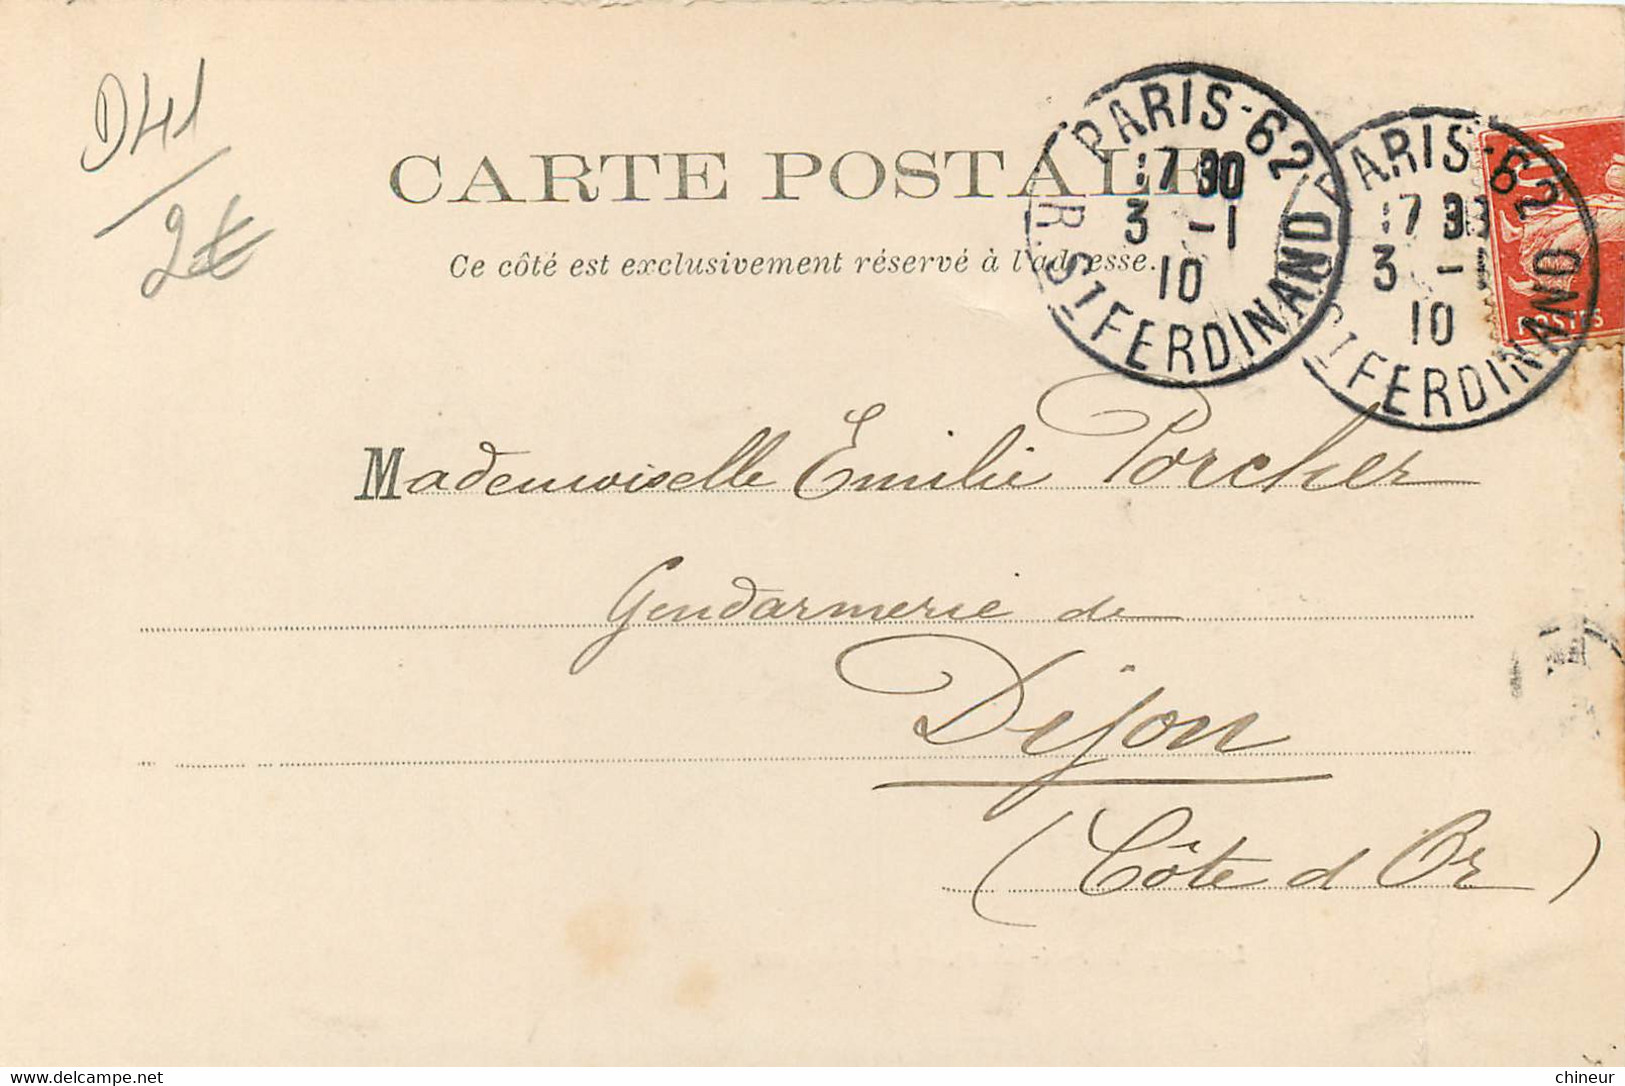 D41
2€
CARTE POSTALE
Ce côté est exclusivement réservé à l'adresse.
PARIS-62
17 30
3 -1
10
R. ST FERDINAND
PARIS-62
17 30
3 -1
10
ST FERDINAND
10
POSTES
Mademoiselle Emilie Porcher
Gendarmerie de
Dijon
(Côte d Or)
chineur